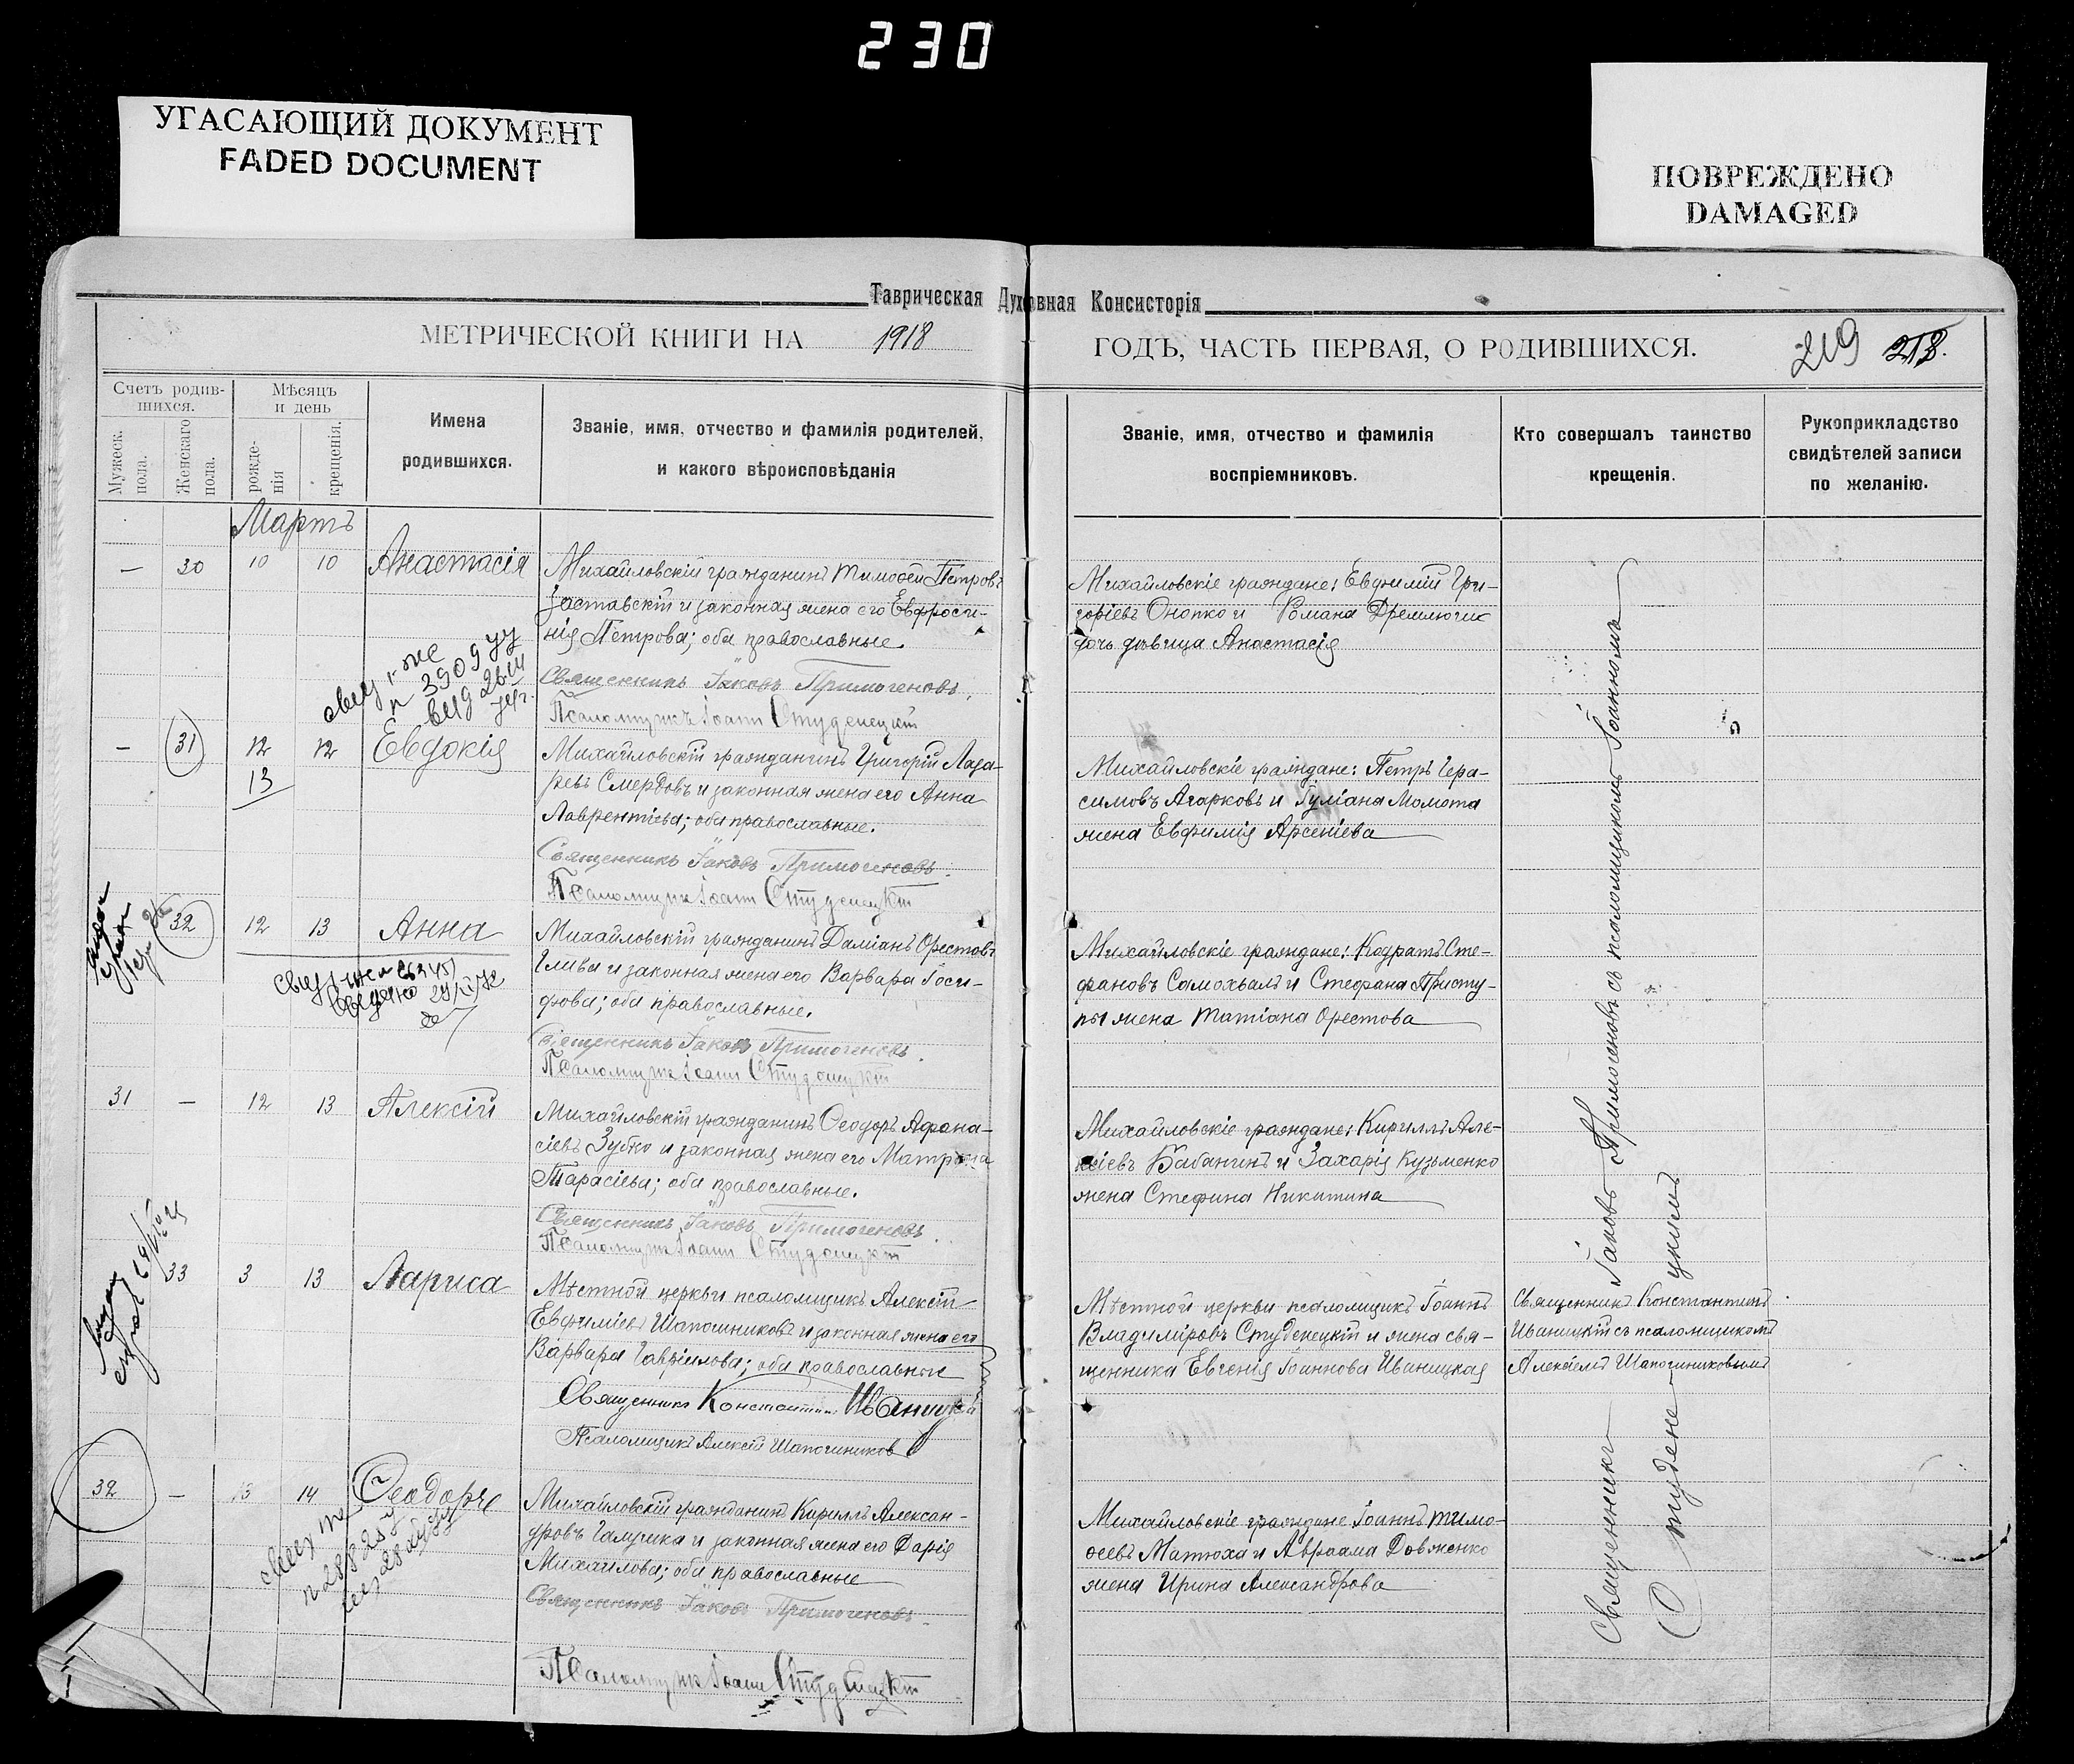 230
УГАСАЮЩИЙ ДОКУМЕНТ
FADED DOCUMENT
ПОВРЕЖДЕНО
DAMAGED
Таврическая Духовная Консисторія
МЕТРИЧЕСКОЙ КНИГИ НА 1918
ГОДЪ, ЧАСТЬ ПЕРВАЯ, О РОДИВШИХСЯ.
219 218.
Счетъ родив-
шихся.
Мужеск.
пола.
Женскаго
пола.
Мѣсяцъ
и день
рожде-
нія
крещенія.
Имена
родившихся.
Званіе, имя, отчество и фамилія родителей,
и какого вѣроисповѣданія
Званіе, имя, отчество и фамилія
воспріемниковъ.
Кто совершалъ таинство
крещенія.
Рукоприкладство
свидѣтелей записи
по желанію.
Мартъ
— 30 10 10 Анастасія
Михайловскій гражданинъ Тимоѳей Петровъ
Заставскій и законная жена его Евфроси-
нія Петрова; оба православные.
Священникъ Іаковъ Примогеновъ.
Псаломщикъ Іоаннъ Студенецкій
Михайловскіе граждане: Евфимій Гри-
горіевъ Онопко и Романа Дремлючик
дочь дѣвица Анастасія
— 31 12 12 Евдокія
13
Михайловскій гражданинъ Григорій Лаза-
ревъ Смердовъ и законная жена его Анна
Лаврентіева; оба православные.
Священникъ Іаковъ Примогеновъ.
Псаломщикъ Іоаннъ Студенецкій
Михайловскіе граждане: Петръ Гера-
симовъ Агарковъ и Іуліана Момота
жена Евфимія Арсеніева
32 12 13 Анна
Михайловскій гражданинъ Даміанъ Орестовъ
Глива и законная жена его Варвара Іоси-
фова; оба православные.
Священникъ Іаковъ Примогеновъ.
Псаломщикъ Іоаннъ Студенецкій
Михайловскіе граждане: Кодратъ Сте-
фановъ Самохвалъ и Стефана Присту-
пы жена Татіана Орестова
31 — 12 13 Алексій
Михайловскій гражданинъ Ѳеодоръ Афана-
сіевъ Зубко и законная жена его Матрона
Тарасіева; оба православные.
Священникъ Іаковъ Примогеновъ.
Псаломщикъ Іоаннъ Студенецкій
Михайловскіе граждане: Кириллъ Але-
ксіевъ Бабанинъ и Захарія Кузьменко
жена Стефина Никитина
33 3 13 Лариса
Мѣстной церкви псаломщикъ Алексій
Евфиміевъ Шапошниковъ и законная жена его
Варвара Гавріилова; оба православные
Священникъ Константинъ Иваницкій
Псаломщикъ Алексій Шапошниковъ
Мѣстной церкви псаломщикъ Іоаннъ
Владиміровъ Студенецкій и жена свя-
щенника Евгенія Іоаннова Иваницкая
Священникъ Константинъ
Иваницкій съ псаломщикомъ
Алексіемъ Шапошниковымъ
32 — 13 14 Ѳеодоръ
Михайловскій гражданинъ Кириллъ Алексан-
дровъ Галушка и законная жена его Дарія
Михаилова; оба православные
Священникъ Іаковъ Примогеновъ.
Псаломщикъ Іоаннъ Студенецкій
Михайловскіе граждане Іоаннъ Тимо-
ѳеевъ Матюха и Авраама Довженко
жена Ирина Александрова
Священникъ Іаковъ Примогеновъ съ псаломщикомъ Іоанномъ
Студенецкимъ